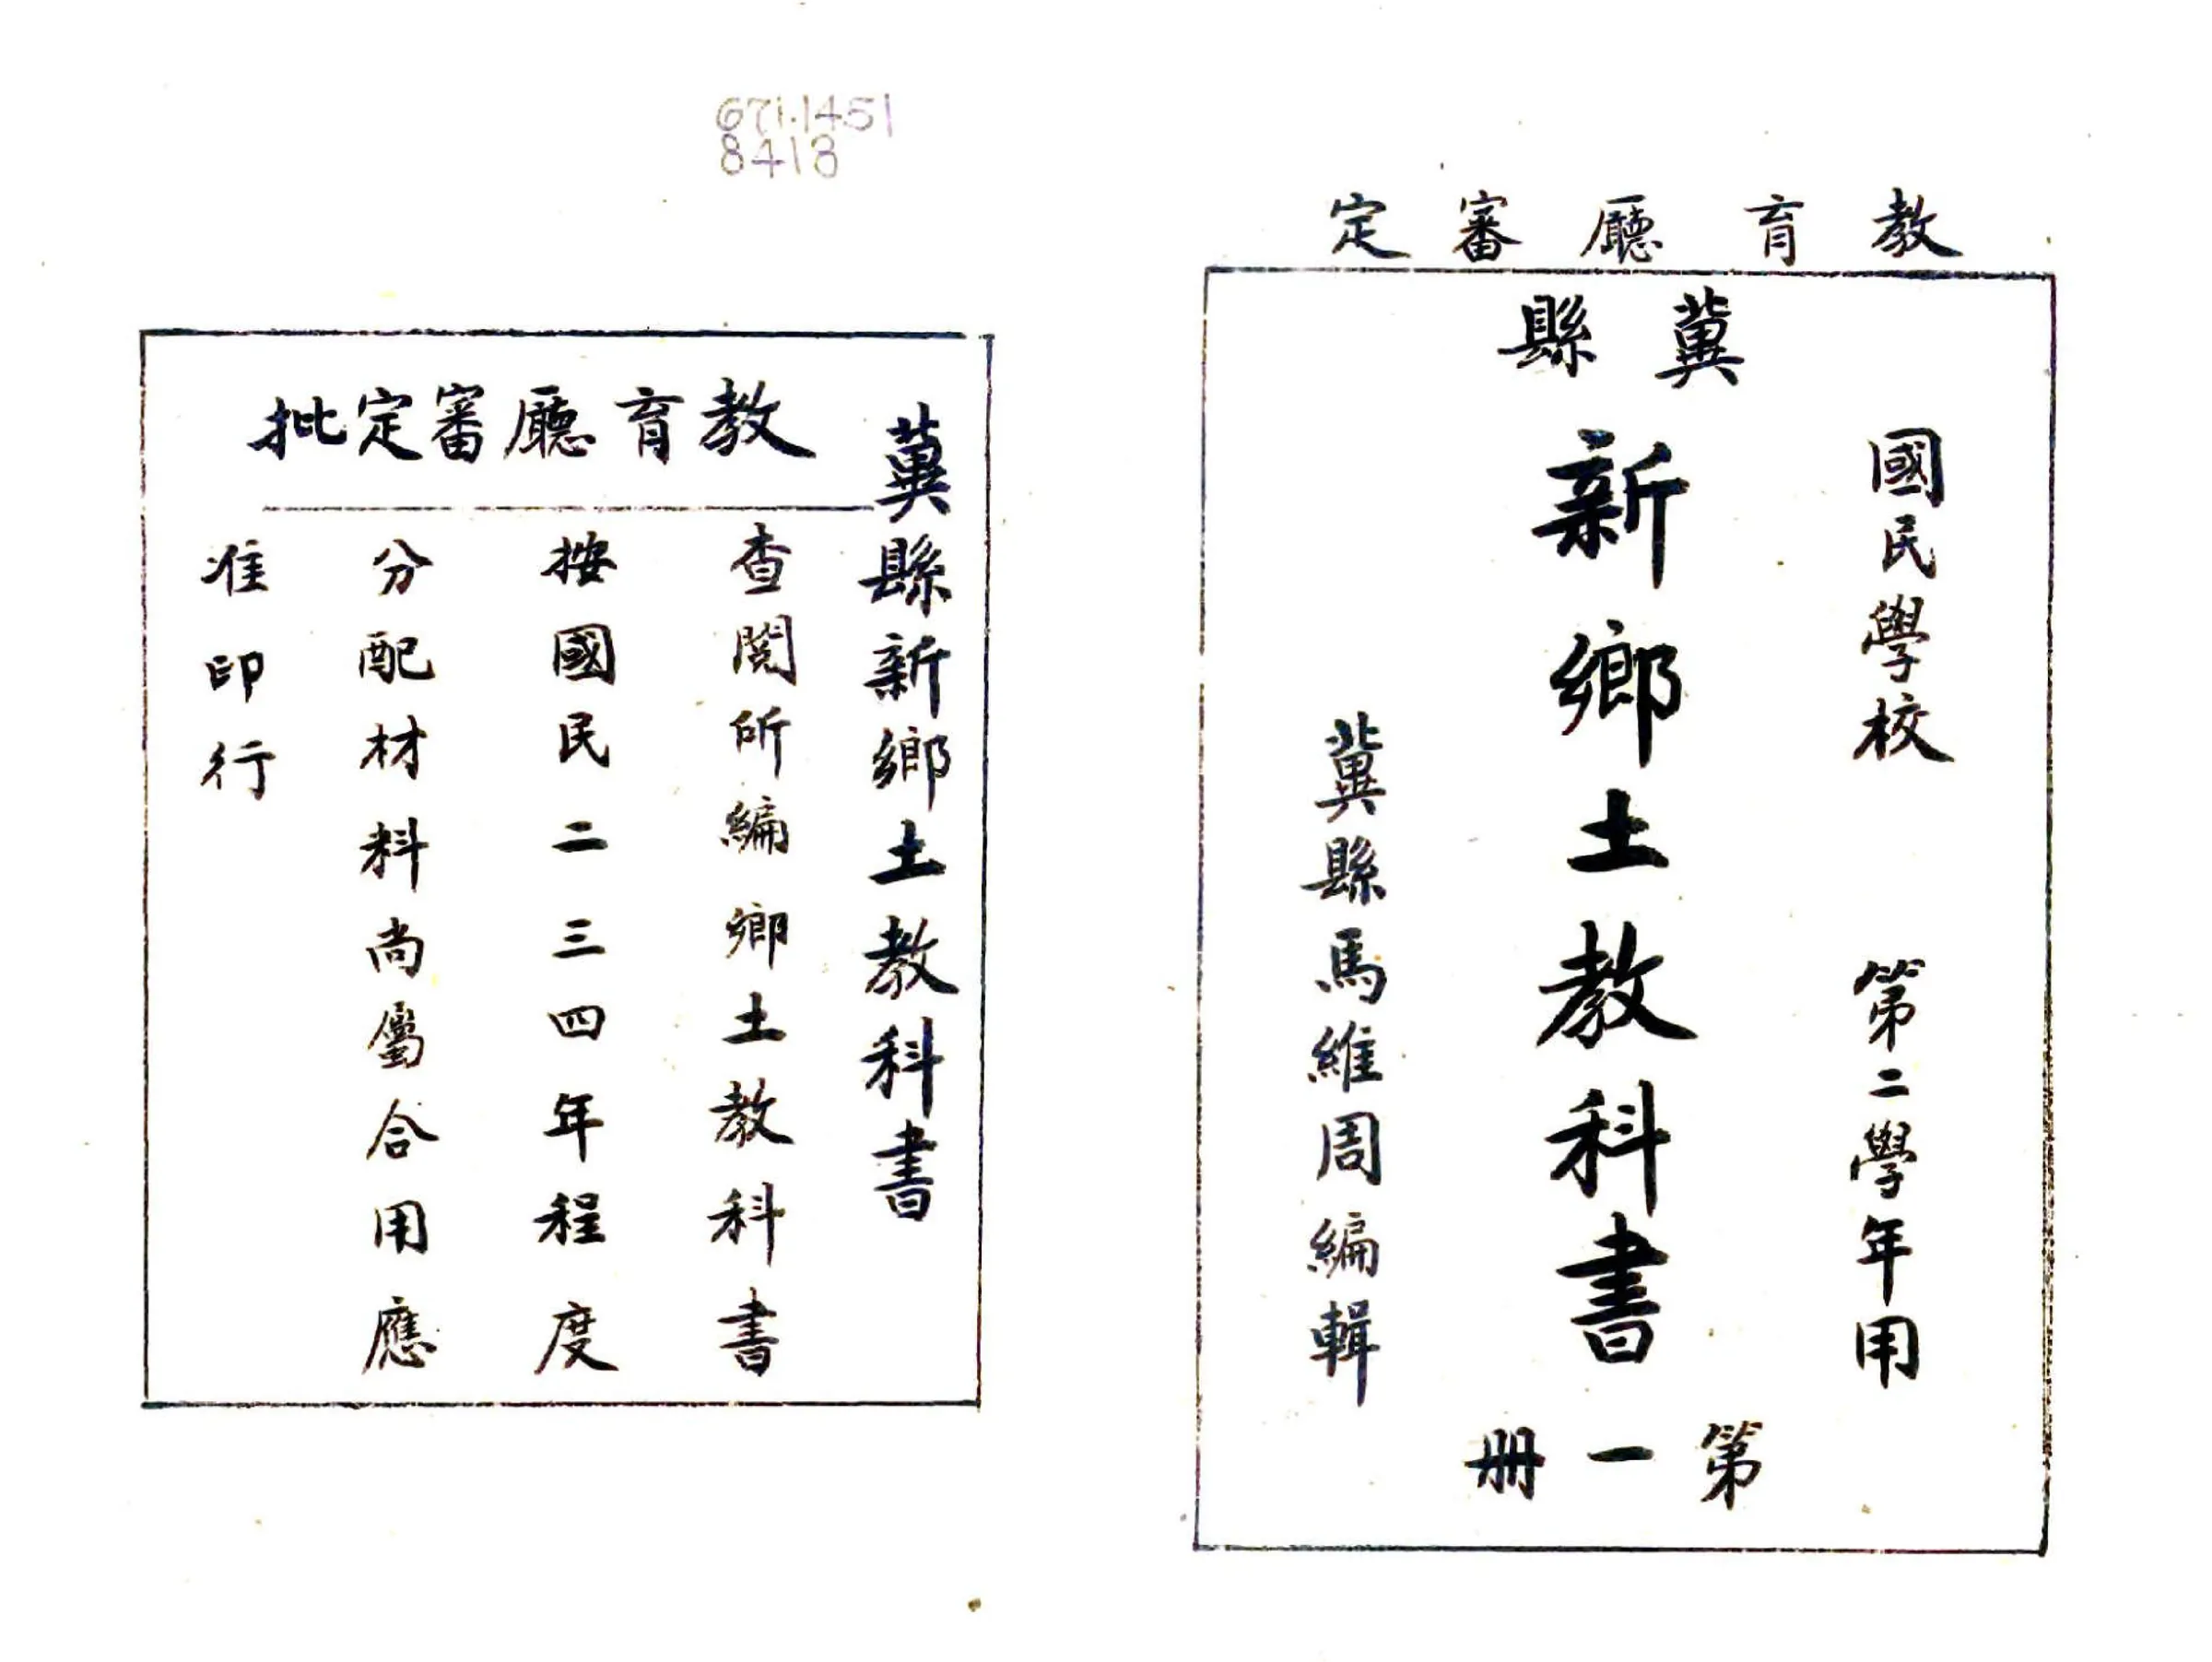 教育廳審定
冀縣
國民學校 第二學年用
新鄉土教科書
冀縣馬維周編輯
第一册
671.1451
8418
冀縣新鄉土教科書
教育廳審定批
查閱所編鄉土教科書
按國民二三四年程度
分配材料尚屬合用應
准印行